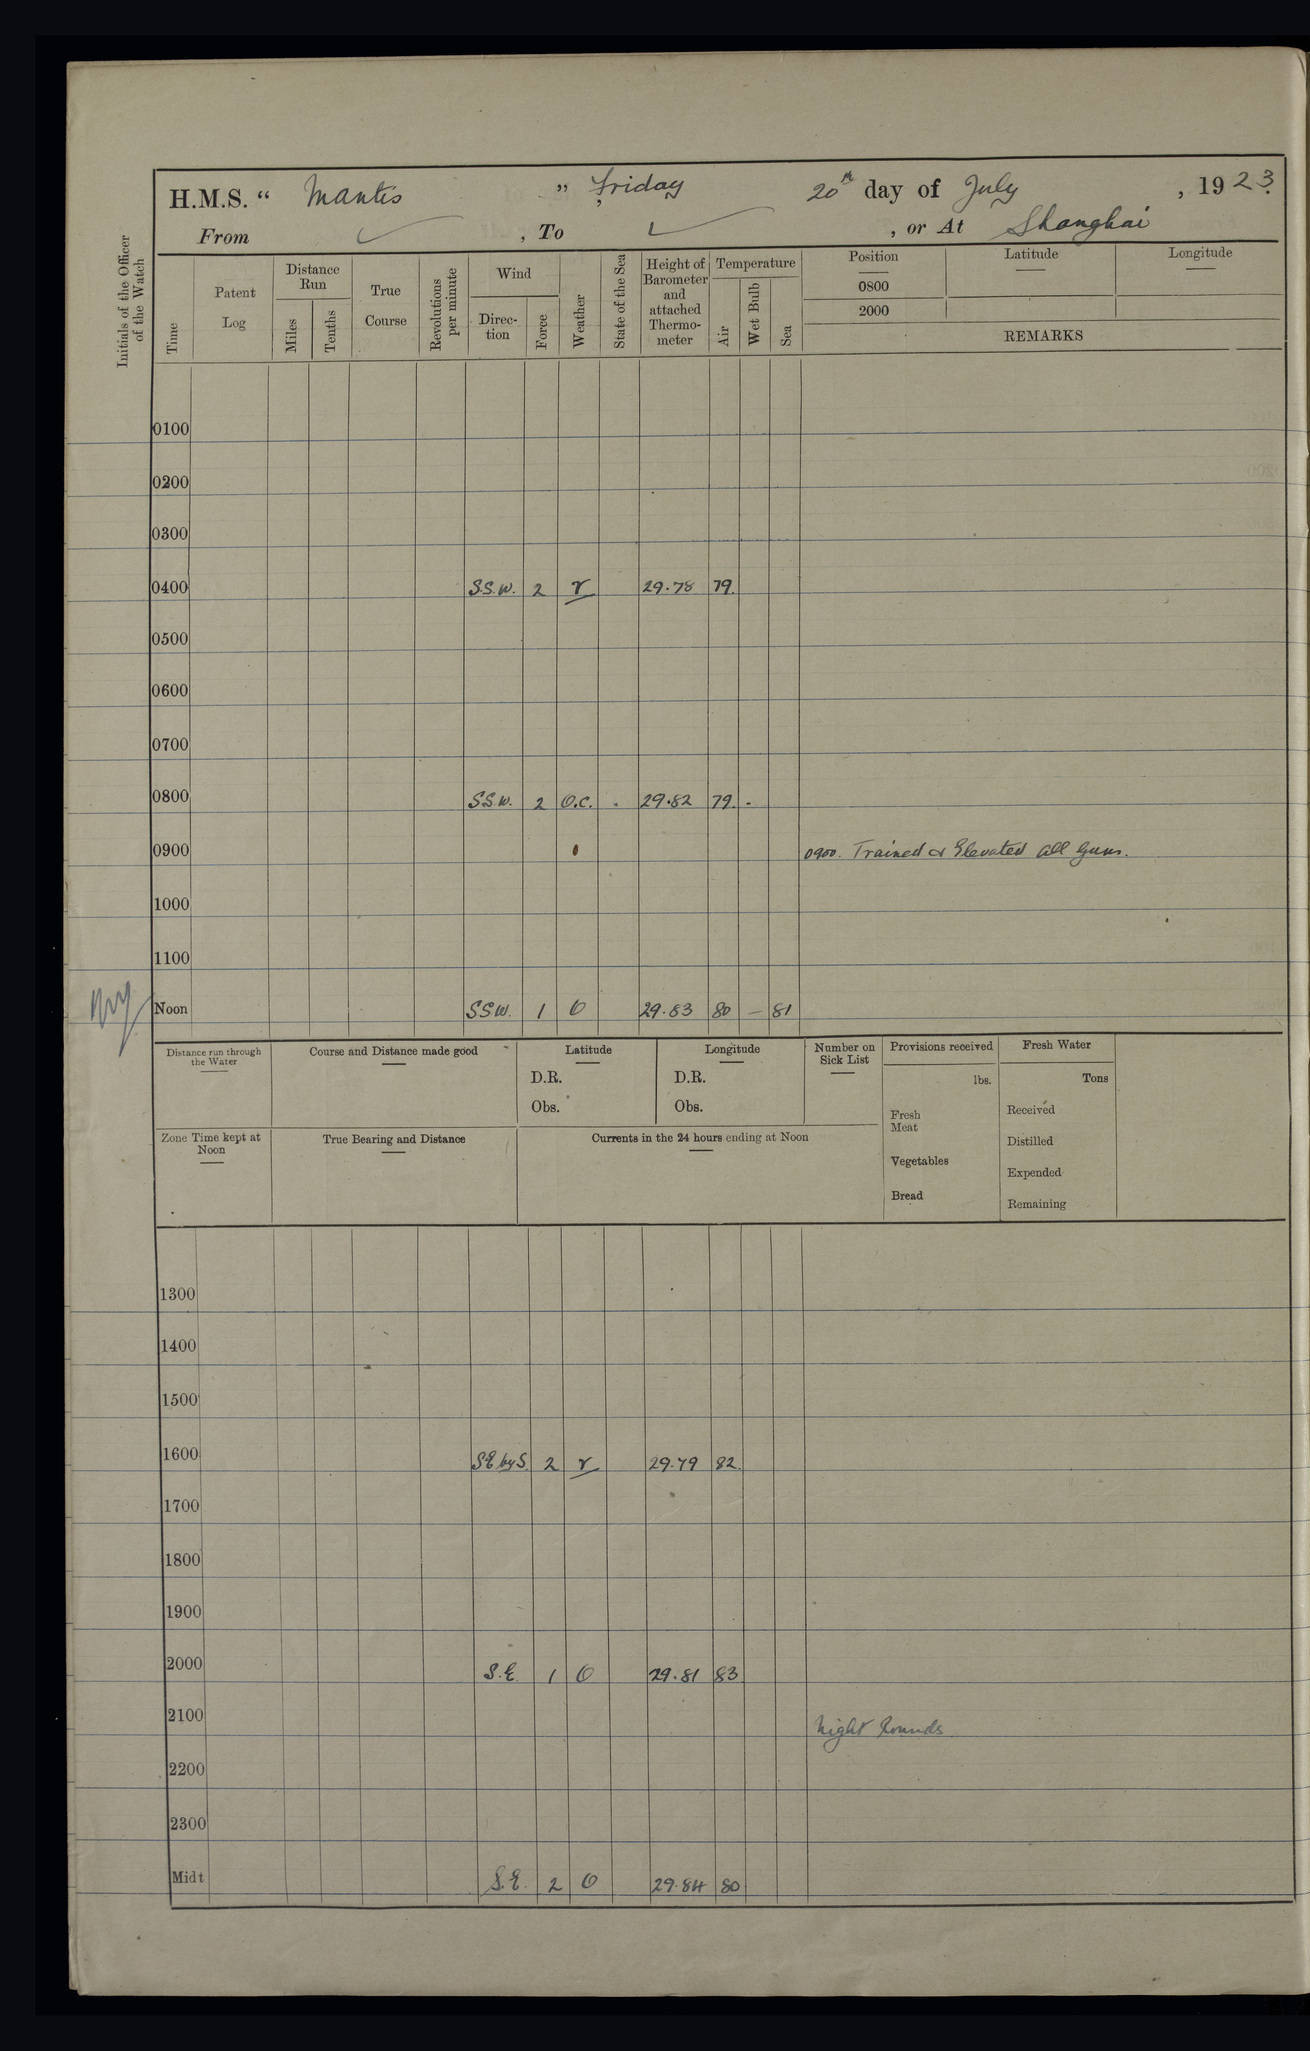 H.M.S. “ Mantis ” Friday 20th day of July , 1923.
From ✓ , To ✓ , or At Shanghai
Initials of the Officer of the Watch
Time
Patent Log
Distance Run
Miles
Tenths
True Course
Revolutions per minute
Wind
Direc-tion
Force
Weather
State of the Sea
Height of Barometer and attached Thermo-meter
Temperature
Air
Wet Bulb
Sea
Position
Latitude
Longitude
0800
2000
REMARKS
0100
0200
0300
0400 S.S.W. 2 r 29.78 79.
0500
0600
0700
0800 SSW. 2 O.C. . 29.82 79. -
0900 0900. Trained & Elevated all Guns.
1000
1100
Noon SSW. 1 O 29.83 80 — 81
Distance run through the Water
Course and Distance made good
Latitude
D.R.
Obs.
Longitude
D.R.
Obs.
Number on Sick List
Provisions received
lbs.
Fresh Meat
Vegetables
Bread
Fresh Water
Tons
Received
Distilled
Expended
Remaining
Zone Time kept at Noon
True Bearing and Distance
Currents in the 24 hours ending at Noon
1300
1400
1500
1600 SE by S. 2 r 29.79 82.
1700
1800
1900
2000 S.E. 1 O 29.81 83
2100 Night Rounds
2200
2300
Midt S.E. 2 O 29.84 80